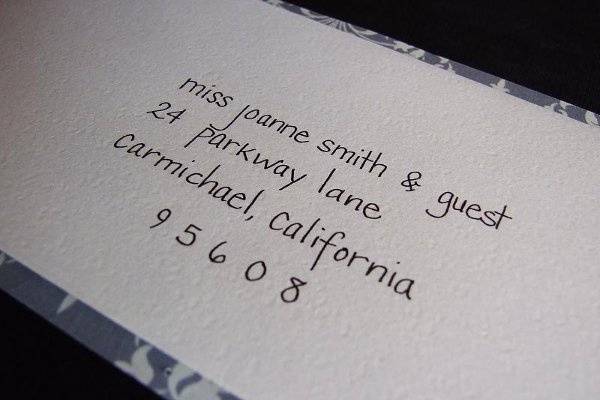 miss joanne smith & guest
24 parkway lane
carmichael, california
95608